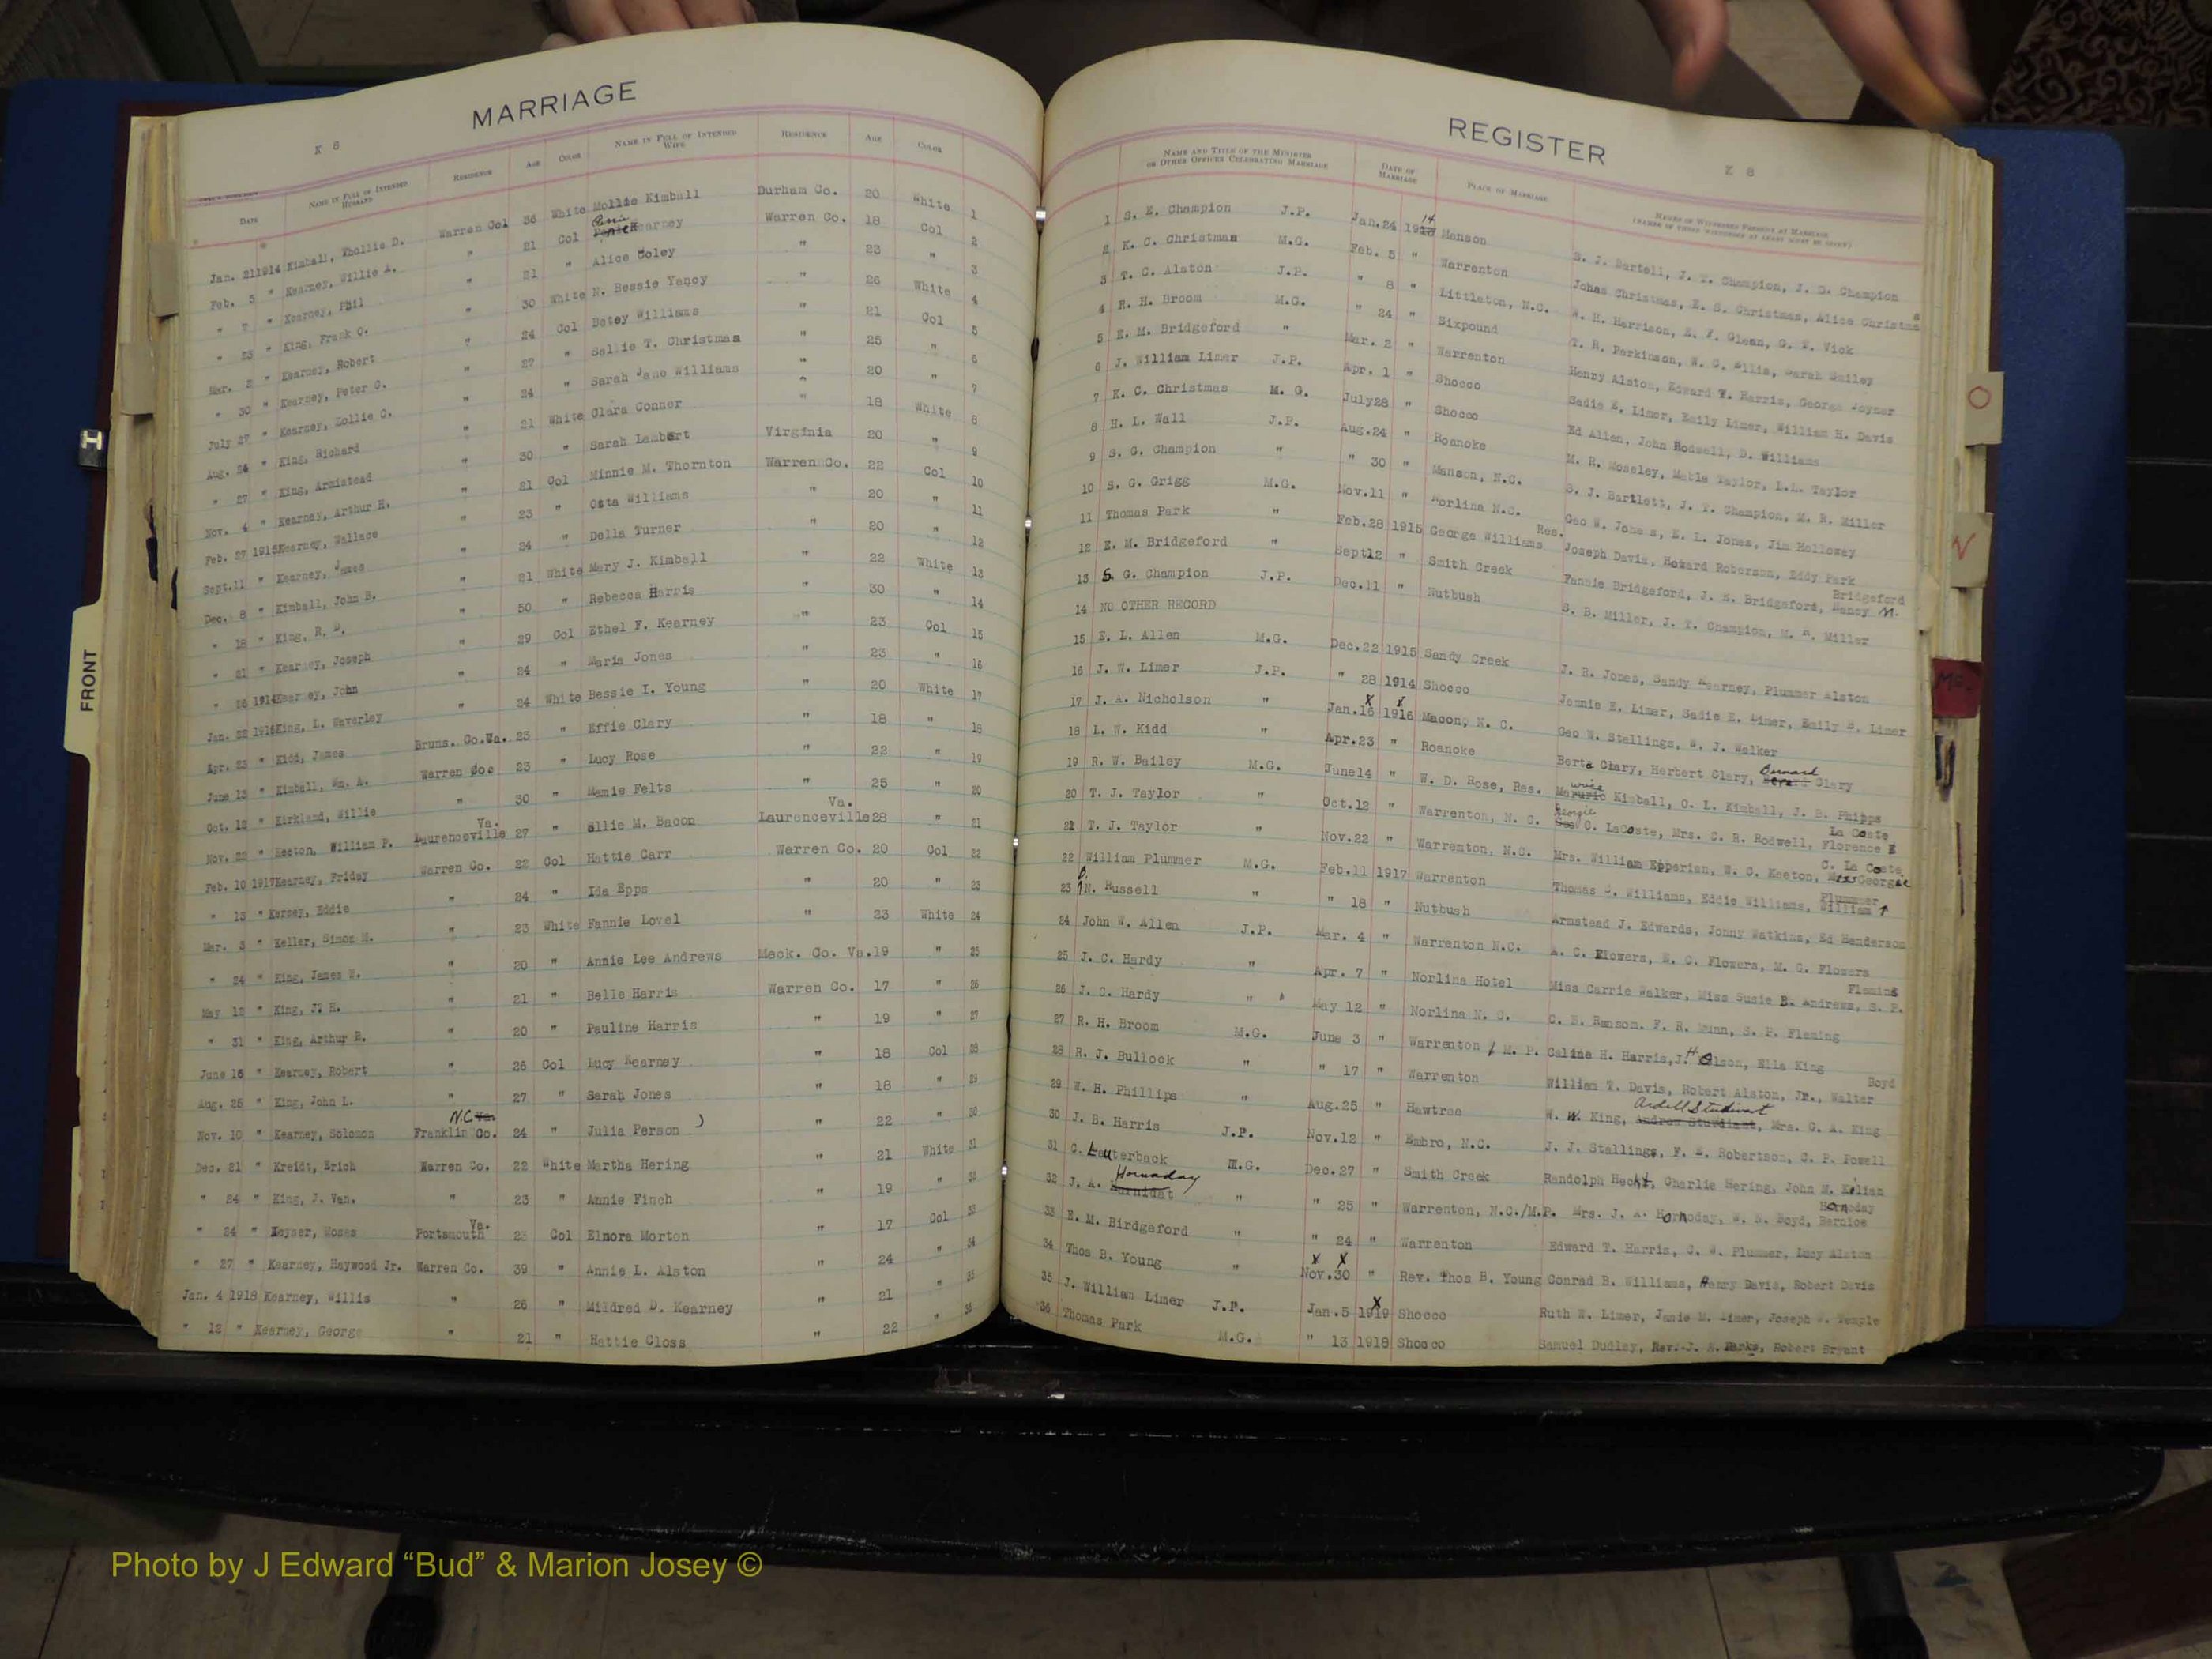 MARRIAGE
K 6
DATE NAME IN FULL OF INTENDED HUSBAND RESIDENCE AGE COLOR NAME IN FULL OF INTENDED WIFE RESIDENCE AGE COLOR
Jan. 21 1914 Kimball, Thollie D. Warren Col 36 White Mollie Kimball Durham Co. 20 White 1
Feb. 5 " Kearney, Willie A. " 21 Col Kearney Warren Co. 18 Col 2
" 7 " Kearney, Phil " 21 " Alice Boley " 23 " 3
" 23 " King, Frank O. " 30 White N. Bessie Yancy 26 White 4
Mar. 2 " Kearney, Robert " 24 Col Betsy Williams " 21 Col 5
" 30 " Kearney, Peter O. " 27 " Sallie T. Christmas " 25 " 6
July 27 " Kearney, Zollie C. " 24 " Sarah Jane Williams " 20 " 7
Aug. 24 " King, Richard " 21 White Clara Conner " 18 White 8
" 27 " King, Armistead " 30 " Sarah Lambert Virginia 20 " 9
Nov. 4 " Kearney, Arthur H. " 21 Col Minnie M. Thornton Warren Co. 22 Col 10
Feb. 27 1915 Kearney, Wallace " 23 " Osta Williams " 20 " 11
Sept. 11 " Kearney, James " 24 " Della Turner " 20 " 12
Dec. 8 " Kimball, John B. " 21 White Mary J. Kimball " 22 White 13
" 18 " King, R. D. " 50 " Rebecca Harris " 30 " 14
" 21 " Kearney, Joseph " 29 Col Ethel F. Kearney " 23 Col 15
" 26 1914 Kearney, John " 24 " Maria Jones " 23 " 16
Jan. 22 1916 King, L. Waverley " 24 White Bessie I. Young " 20 White 17
Apr. 23 " Kidd, James Bruns. Co. Va. 23 " Effie Clary " 18 " 18
June 13 " Kimball, Wm. A. Warren Coo 23 " Lucy Rose " 22 " 19
Oct. 12 " Kirkland, Willie " 30 " Mamie Felts " 25 " 20
Nov. 22 " Keeton, William P. Laurenceville Va. 27 " Ellie M. Bacon Laurenceville Va. 28 " 21
Feb. 10 1917 Kearney, Friday Warren Co. 22 Col Hattie Carr Warren Co. 20 Col 22
" 13 " Kersey, Eddie " 24 " Ida Epps " 20 " 23
Mar. 3 " Keller, Simon M. " 23 White Fannie Lovel " 23 White 24
" 24 " King, James W. " 20 " Annie Lee Andrews Meck. Co. Va. 19 " 25
May 12 " King, J. H. " 21 " Belle Harris Warren Co. 17 " 26
" 31 " King, Arthur R. " 20 " Pauline Harris " 19 " 27
June 16 " Kearney, Robert " 26 Col Lucy Kearney " 18 Col 28
Aug. 25 " King, John L. " 27 " Sarah Jones " 18 " 29
Nov. 10 " Kearney, Solomon Franklin Co. N.C. 24 " Julia Person " 22 " 30
Dec. 21 " Kreidt, Erich Warren Co. 22 White Martha Hering " 21 White 31
" 24 " King, J. Van. " 23 " Annie Finch " 19 " 32
" 24 " Keyser, Moses Portsmouth Va. 23 Col Elnora Morton " 17 Col 33
" 27 " Kearney, Haywood Jr. Warren Co. 39 " Annie L. Alston " 24 " 34
Jan. 4 1918 Kearney, Willis " 26 " Mildred D. Kearney " 21 " 35
" 12 " Kearney, George " 21 " Hattie Closs " 22 " 36
FRONT
REGISTER
K 8
NAME AND TITLE OF THE MINISTER OR OTHER OFFICER CELEBRATING MARRIAGE DATE OF MARRIAGE PLACE OF MARRIAGE NAMES OF WITNESSES PRESENT AT MARRIAGE
1 S. E. Champion J.P. Jan. 24 1914 Manson B. J. Bartell, J. T. Champion, J. G. Champion
2 K. C. Christman M.G. Feb. 5 " Warrenton Johas Christmas, E. S. Christmas, Alice Christmas
3 T. C. Alston J.P. " 8 " Littleton, N.C. W. H. Harrison, G. Vick
4 R. H. Broom M.G. " 24 " Sixpound T. R. Parkinson, W. G. Ellis, Sarah Bailey
5 E. M. Bridgeford " Mar. 2 " Warrenton Henry Alston, Edward T. Harris, George Joyner
6 J. William Limer J.P. Apr. 1 " Shocco Sadie E. Limer, Emily Limer, William H. Davis
7 K. C. Christmas M. G. July 28 " Shocco Ed Allen, John Rodwell, D. Williams
8 H. L. Wall J.P. Aug. 24 " Roanoke M. R. Moseley, Mable Taylor, L.L. Taylor
9 S. G. Champion " " 30 " Manson, N.C. S. J. Bartlett, J. T. Champion, M. R. Miller
10 S. G. Grigg M.G. Nov. 11 " Norlina N.C. Geo W. Jones, E. L. Jones, Jim Holloway
11 Thomas Park " Feb. 28 1915 George Williams Res. Joseph Davis, Howard Roberson, Eddy Park
12 E. M. Bridgeford " Sept 12 " Smith Creek Fannie Bridgeford, J. E. Bridgeford, Nancy M. Bridgeford
13 S. G. Champion J.P. Dec. 11 " Nutbush S. B. Miller, J. T. Champion, M. R. Miller
14 NO OTHER RECORD
15 E. L. Allen M.G. Dec. 22 1915 Sandy Creek J. R. Jones, Sandy Kearney, Plummer Alston
16 J. W. Limer J.P. " 28 1914 Shocco Jennie E. Limer, Sadie E. Limer, Emily B. Limer
17 J. A. Nicholson " Jan. 16 1916 Macon, N. C. Geo W. Stallings, W. J. Walker
18 L. W. Kidd " Apr. 23 " Roanoke Berta Clary, Herbert Clary, Bernard Clary
19 R. W. Bailey M.G. June 14 " W. D. Rose, Res. Kimball, O. L. Kimball, J. B. Phipps
20 T. J. Taylor " Oct. 12 " Warrenton, N. C. Georgie C. LaCoste, Mrs. C. R. Rodwell, Florence La Coste
21 T. J. Taylor " Nov. 22 " Warrenton, N.C. Mrs. William Epperian, W. C. Keeton, Miss Georgie C. La Coste
22 William Plummer M.G. Feb. 11 1917 Warrenton Thomas C. Williams, Eddie Williams, William Plummer
23 N. Russell " " 18 " Nutbush Armstead J. Edwards, Jonny Watkins, Ed Henderson
24 John W. Allen J.P. Mar. 4 " Warrenton N.C. A. C. Flowers, E. C. Flowers, M. G. Flowers
25 J. C. Hardy " Apr. 7 " Norlina Hotel Miss Carrie Walker, Miss Susie B. Andrews, S. P. Fleming
26 J. C. Hardy " May 12 " Norlina N. C. C. E. Ransom. F. R. Munn, S. P. Fleming
27 R. H. Broom M.G. June 3 " Warrenton / M. P. Caline H. Harris, J. H Olson, Ella King
28 R. J. Bullock " " 17 " Warrenton William T. Davis, Robert Alston, Jr., Walter Boyd
29 W. H. Phillips " Aug. 25 " Hawtree W. W. King, Ardell Studivant, Mrs. G. A. King
30 J. B. Harris J.P. Nov. 12 " Embro, N.C. J. J. Stallings, F. E. Robertson, C. P. Powell
31 C. Lauterback M.G. Dec. 27 " Smith Creek Randolph Hecht, Charlie Hering, John N. Kilian
32 J. A. Hornaday " " 25 " Warrenton, N.C./M.P. Mrs. J. A. Hornoday, W. B. Boyd, Bernice Hornoday
33 E. M. Birdgeford " " 24 " Warrenton Edward T. Harris, J. W. Plummer, Lucy Alston
34 Thos B. Young " Nov. 30 " Rev. Thos B. Young Conrad B. Williams, Henry Davis, Robert Davis
35 J. William Limer J.P. Jan. 5 1919 Shocco Ruth W. Limer, Janie M. Limer, Joseph W. Temple
36 Thomas Park M.G. " 13 1918 Shocco Samuel Dudley, Rev. J. A. Parks, Robert Bryant
O
N
Mc-
Photo by J Edward “Bud” & Marion Josey ©